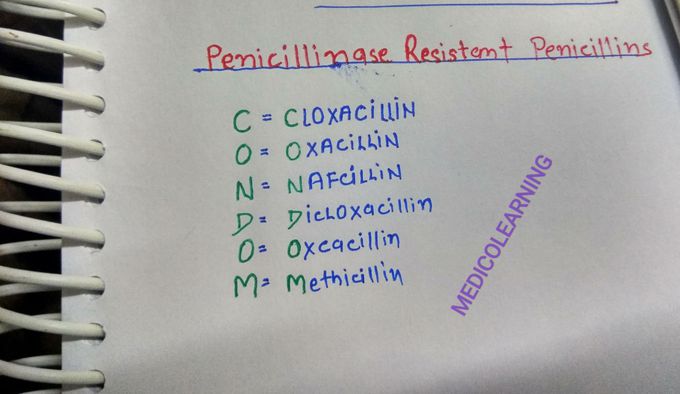 Penicillinase Resistent Penicillins
C = CLOXACILLIN
O = OXACILLIN
N = NAFCILLIN
D = Dicloxacillin
O = Oxcacillin
M = Methicillin
MEDICOLEARNING